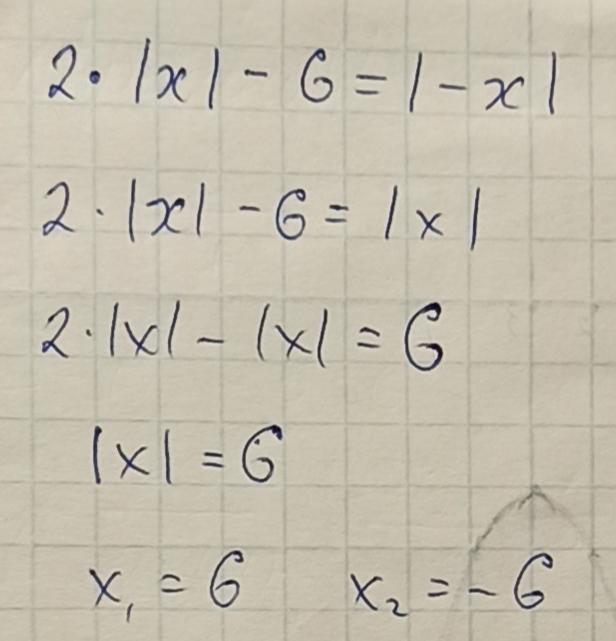 2 · |x| - 6 = |-x|
2 · |x| - 6 = |x|
2 · |x| - |x| = 6
|x| = 6
x₁ = 6 x₂ = -6